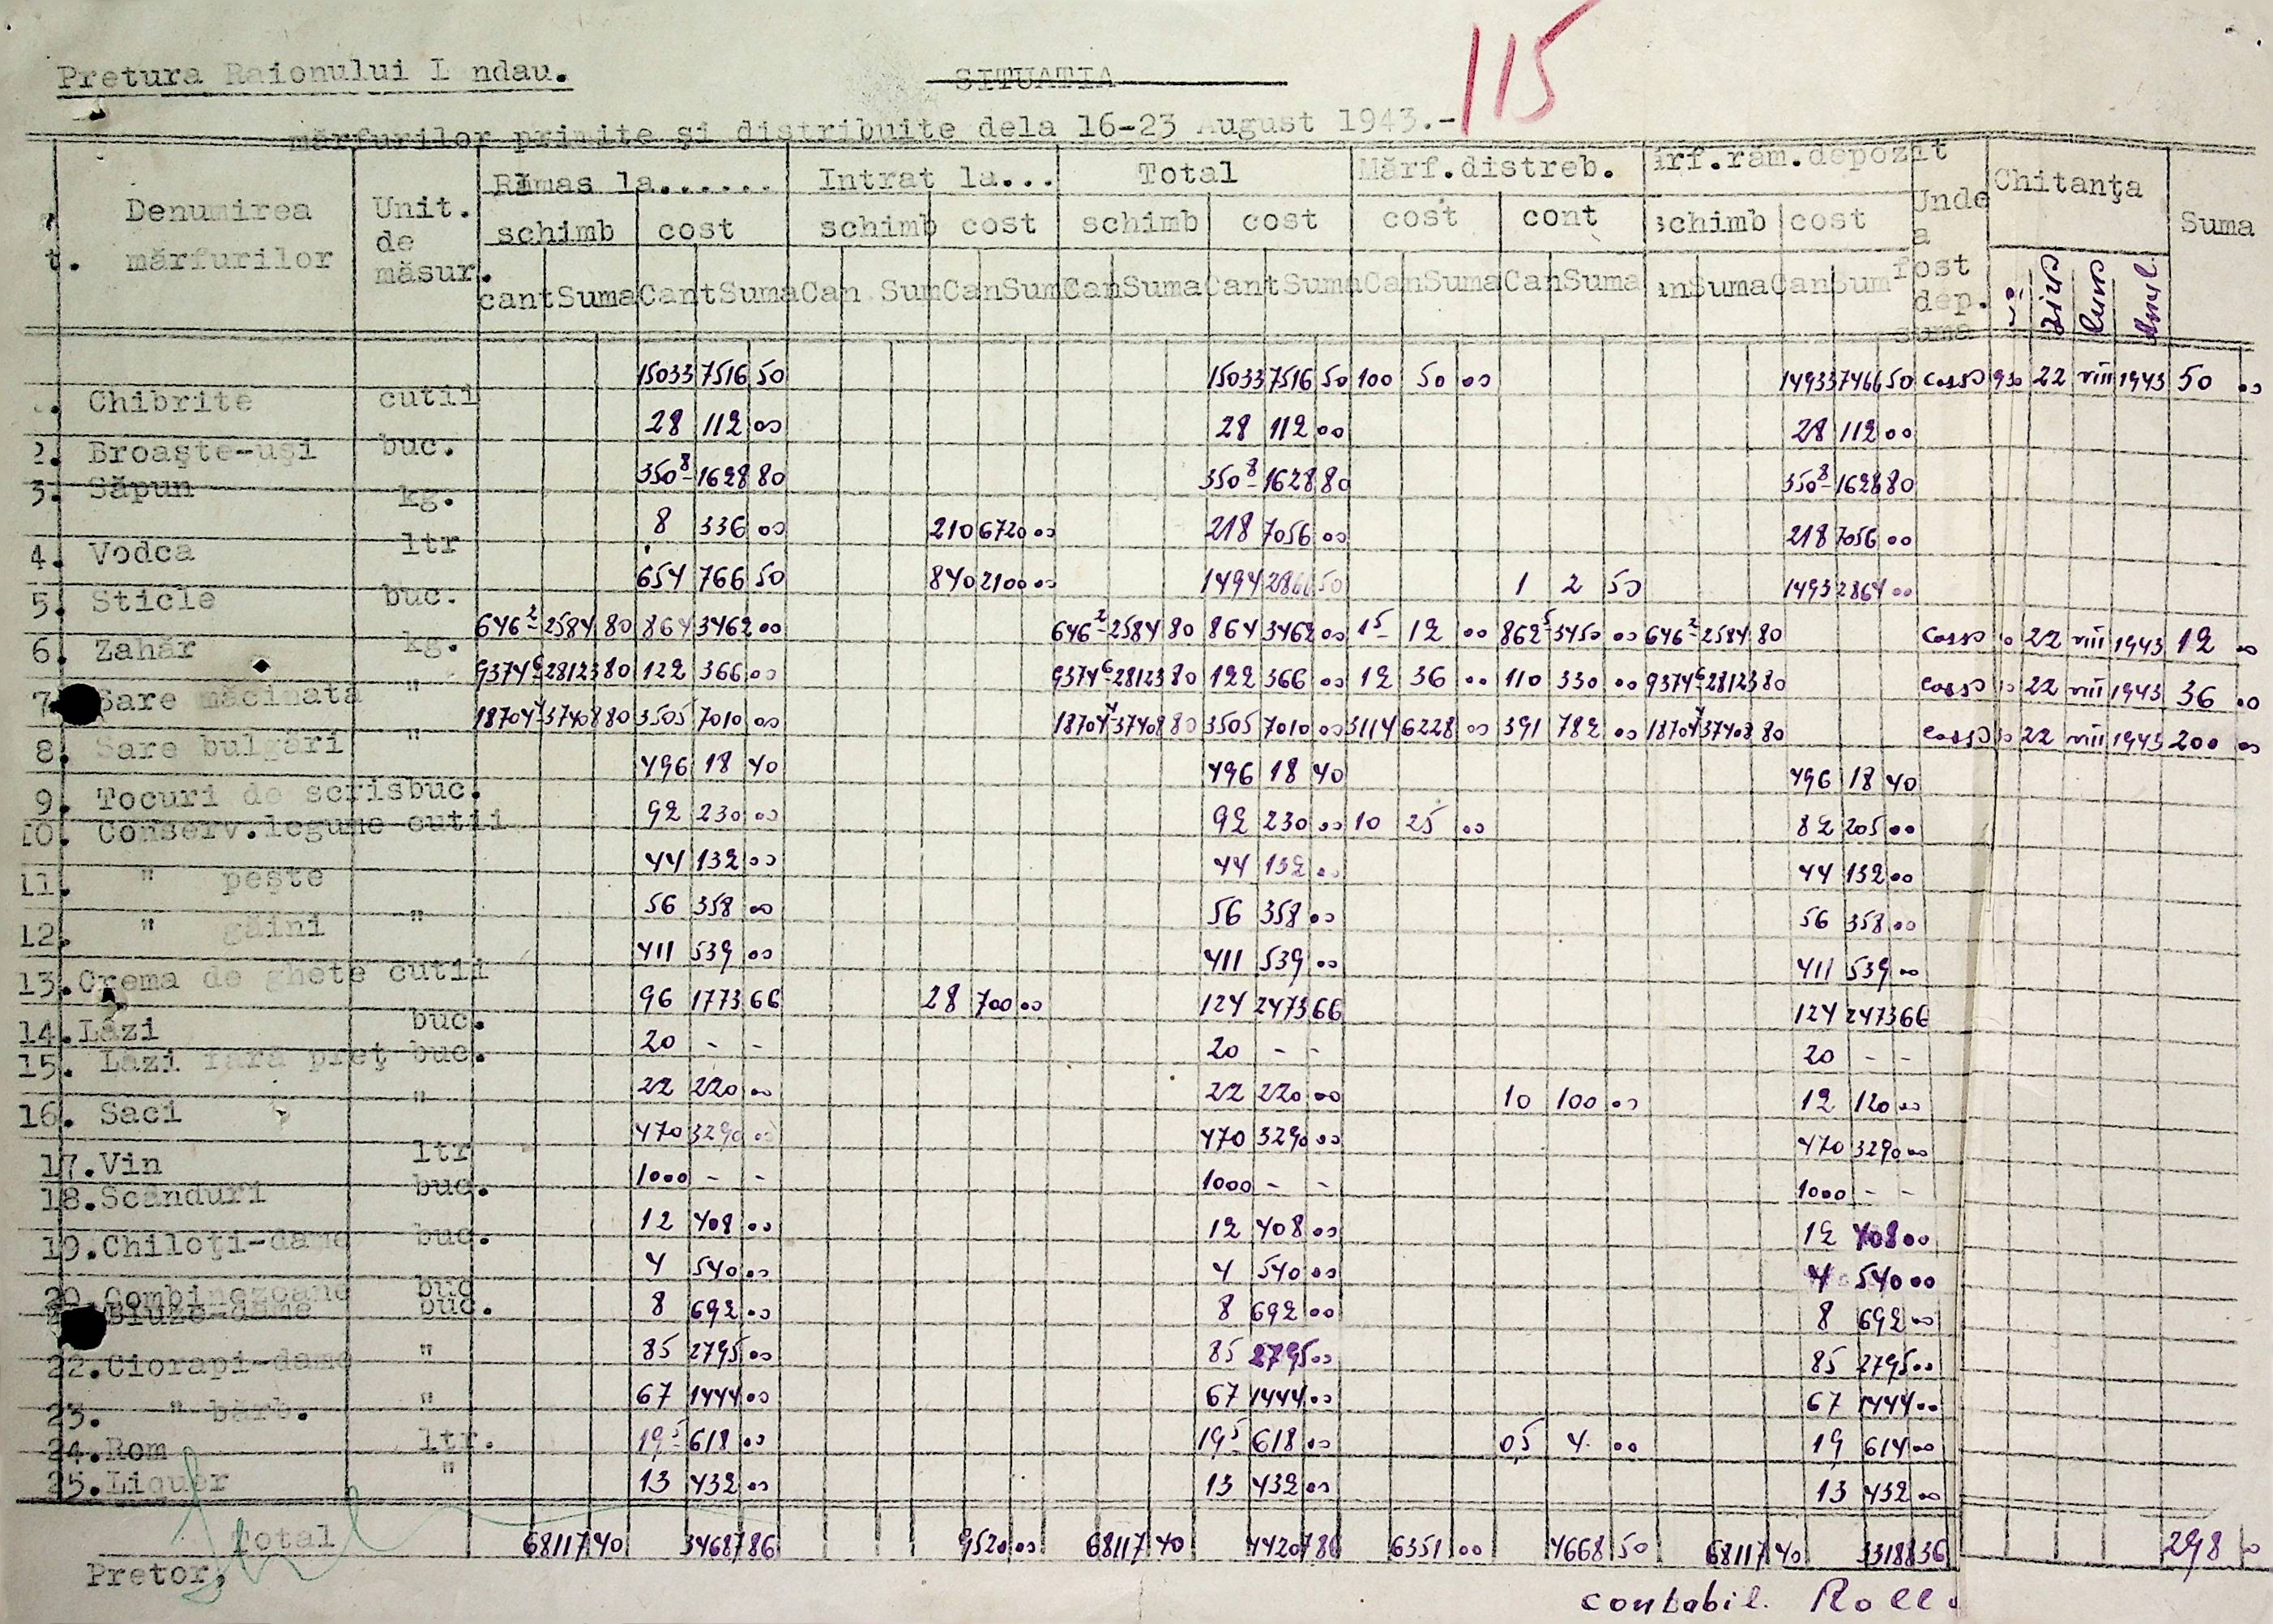 115
Pretura Raionului L ndau.
SITUATIA
mărfurilor primite şi distribuite dela 16-23 August 1943.-
t. Denumirea mărfurilor Unit. de măsur. Rămas la...... Intrat la... Total Mărf.distreb. ărf.răm.depozit Unde a fost dep. suma Chitanţa Suma
schimb cost schimb cost schimb cost cost cont schimb cost
cant Suma Cant Suma Can Sum Can Sum Can Suma Cant Suma Can Suma Can Suma an Suma Can Sum ziua luna Anul
Chibrite cutii 15033 7516 50 15033 7516 50 100 50 00 14933 7466 50 cassa 930 22 VIII 1943 50 00
2. Broaşte-uşi buc. 28 112 00 28 112 00 28 112 00
3. Săpun kg. 350 8 1628 80 350 8 1628 80 350 8 1628 80
4. Vodca ltr 8 336 00 210 6720 00 218 7056 00 218 7056 00
5. Sticle buc. 654 766 50 840 2100 00 1494 2866 50 1 2 50 1493 2864 00
6. Zahăr kg. 646 2 2584 80 864 3462 00 646 2 2584 80 864 3462 00 1 5 12 00 862 5 3450 00 646 2 2584 80 cassa 22 VIII 1943 12 00
7. Sare măcinată " 9374 6 28123 80 122 366 00 9374 6 28123 80 122 366 00 12 36 00 110 330 00 9374 6 28123 80 cassa 22 VIII 1943 36 00
8. Sare bulgări " 18704 4 37408 80 3505 7010 00 18704 4 37408 80 3505 7010 00 3114 6228 00 391 782 00 18704 4 37408 80 cassa 22 VIII 1943 200 00
9. Tocuri de scris buc. 496 18 40 496 18 40 496 18 40
10. Conserv.legume cutii 92 230 00 92 230 00 10 25 00 82 205 00
11. " peşte 44 132 00 44 132 00 44 132 00
12. " găini " 56 358 00 56 358 00 56 358 00
13. Crema de ghete cutii 411 539 00 411 539 00 411 539 00
14. Lăzi buc. 96 1773 66 28 700 00 124 2473 66 124 2473 66
15. Lăzi fără preţ buc. 20 - - 20 - - 20 - -
16. Saci " 22 220 00 22 220 00 10 100 00 12 120 00
17. Vin ltr 470 3290 00 470 3290 00 470 3290 00
18. Scânduri buc. 1000 - - 1000 - - 1000 - -
19. Chiloţi-dame buc. 12 408 00 12 408 00 12 408 00
20. Combinezoane buc 4 540 00 4 540 00 4 540 00
Bluze-dame buc. 8 692 00 8 692 00 8 692 00
22. Ciorapi-dame " 85 2795 00 85 2795 00 85 2795 00
23. " bărb. " 67 1444 00 67 1444 00 67 1444 00
24. Rom ltr. 19 5 618 00 19 5 618 00 0,5 4 00 19 614 00
25. Liquer " 13 432 00 13 432 00 13 432 00
Total 68117 40 34687 86 9520 00 68117 40 44207 86 6351 00 4668 50 68117 40 33188 36 298
Pretor,
contabil. Roll.